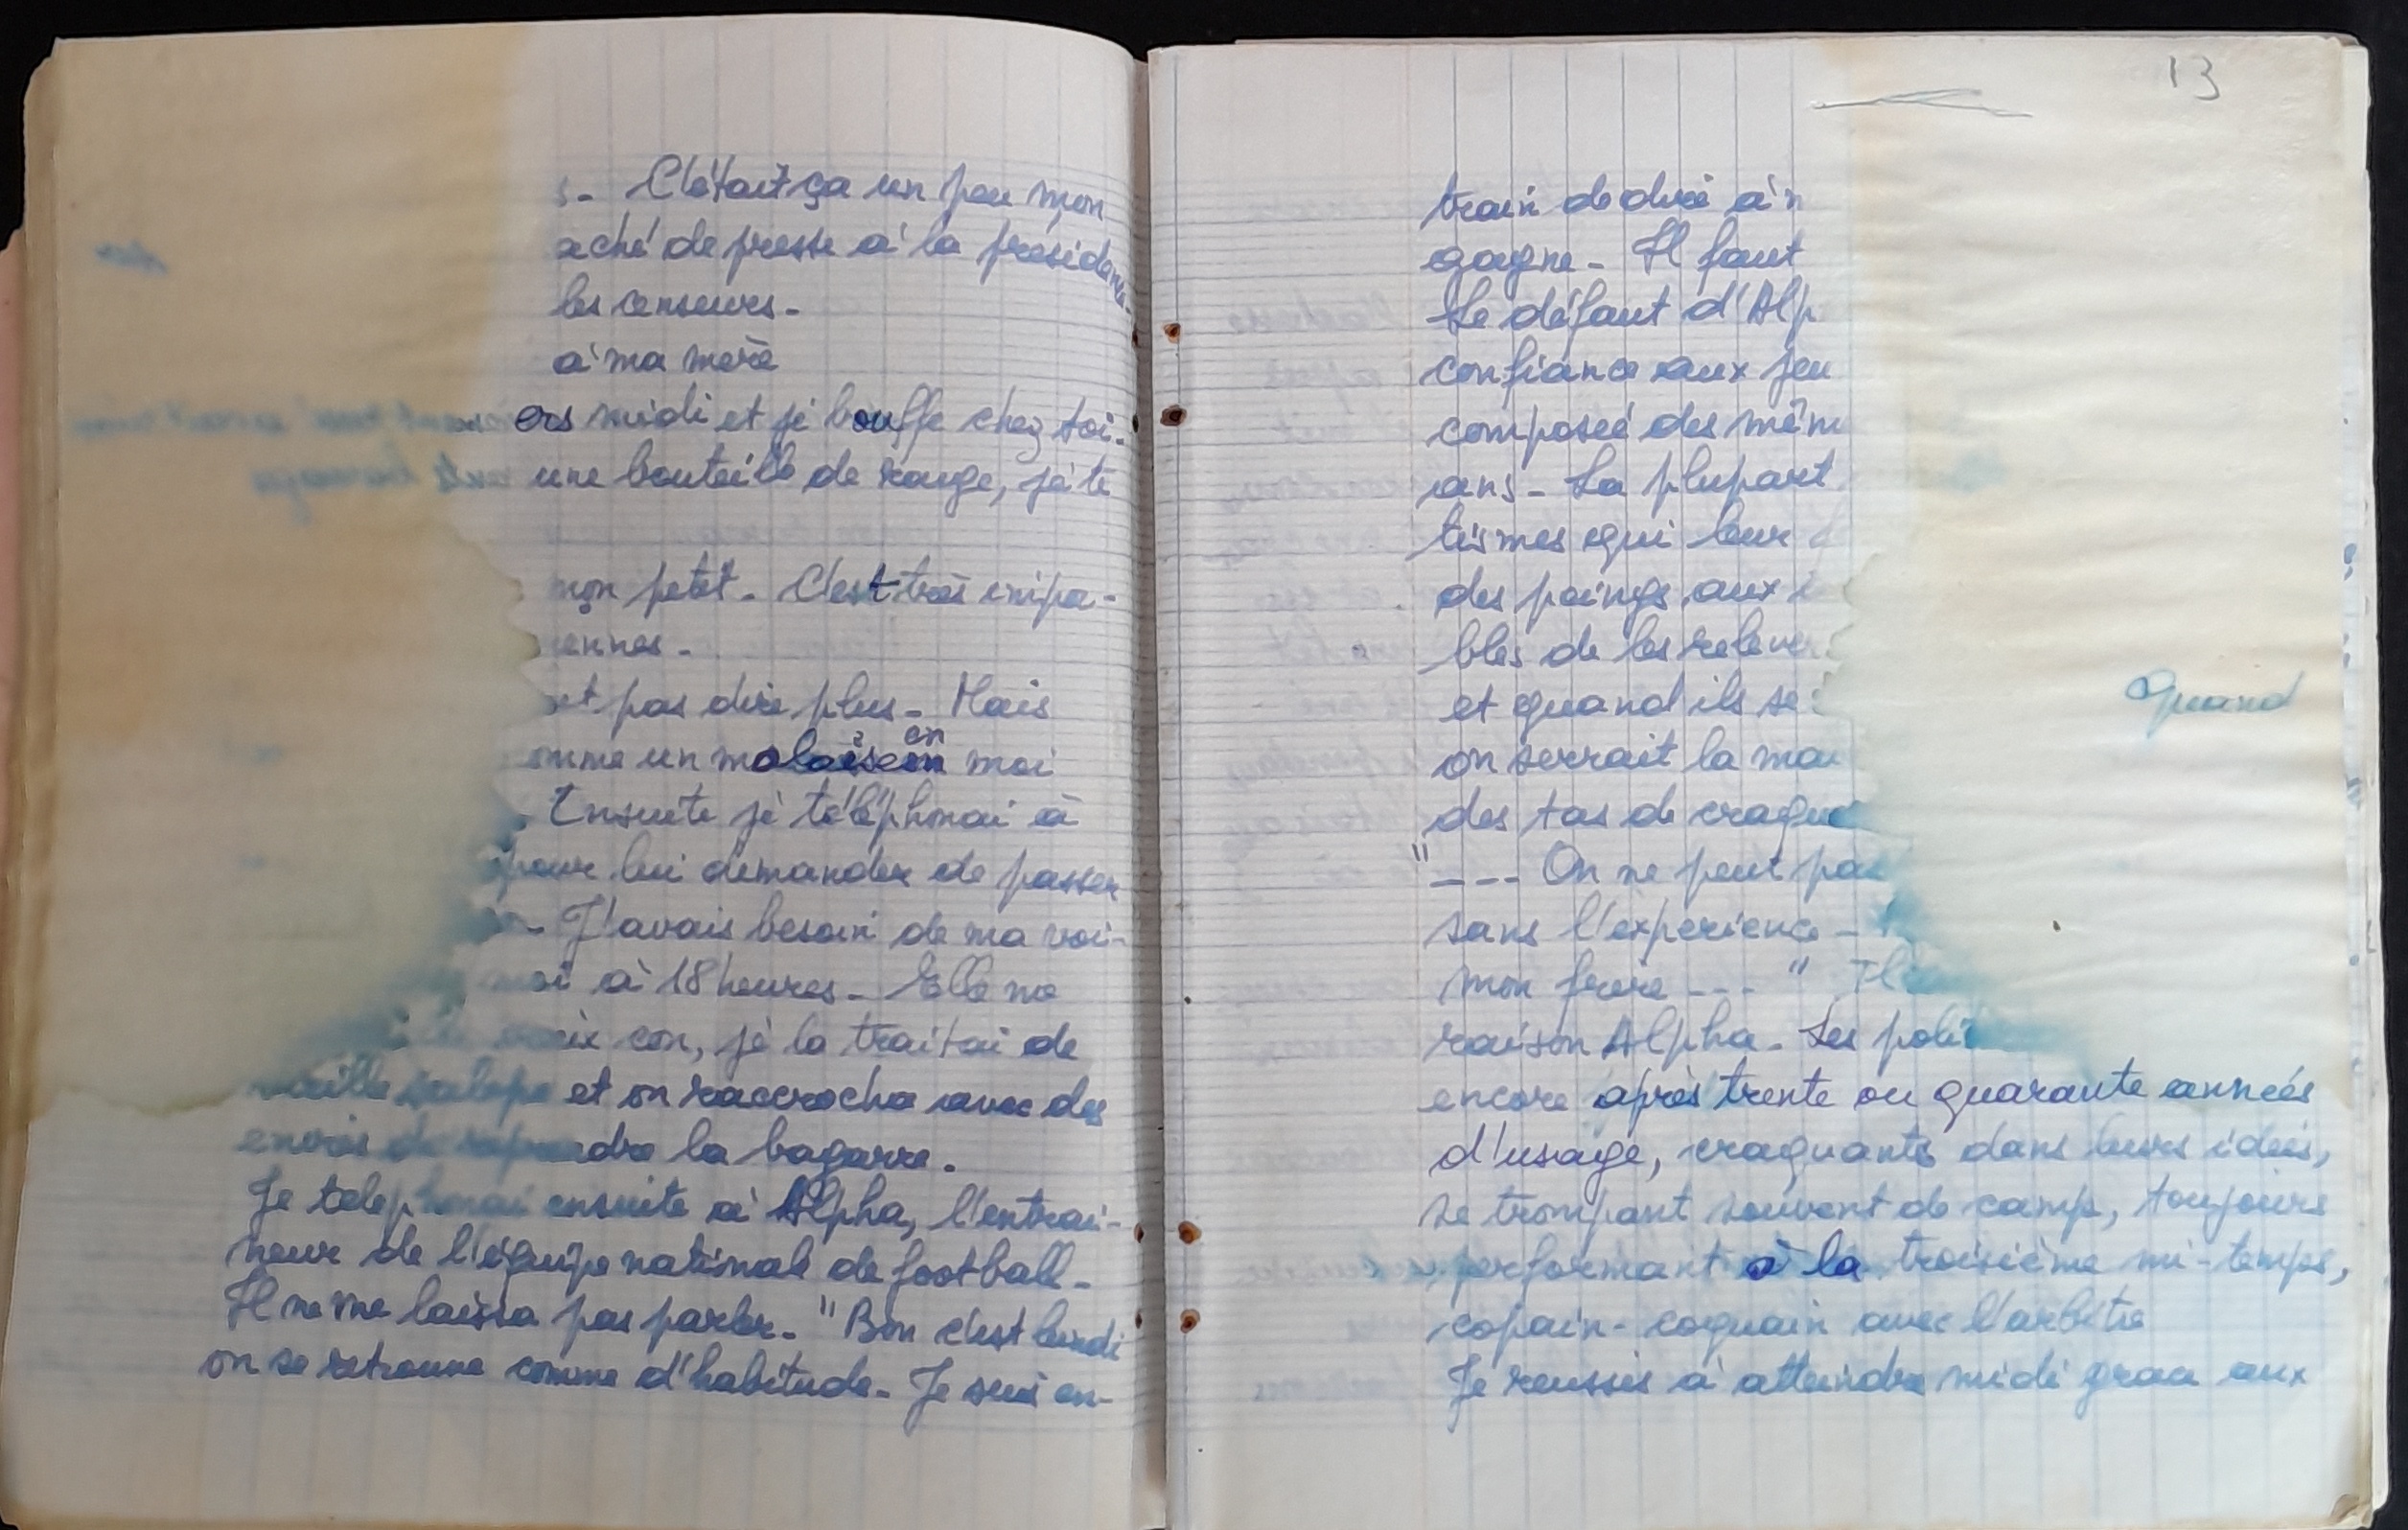 C'était ça un peu mon
aché de presse à la présidence.
les censeurs.
à ma mère
ers midi et je bouffe chez toi.
une bouteille de rouge, je te
mon petit. C'est très impa-
iennes.
et pas dire plus. Mais
en
omme un malaise en moi
Ensuite je téléphonai à
pour lui demander de passer
J'avais besoin de ma voi-
moi à 18 heures. Elle me
con, je la traitai de
vieille salope et on raccrocha avec des
envies de reprendre la bagarre.
Je telephonai ensuite à Alpha, l'entrai-
neur de l'équipe nationale de football.
Il ne me laissa pas parler. "Bon c'est lundi
on se retrouve comme d'habitude. Je suis en-
13
train de dire à n
gagne. Il faut
Le défaut d'Alp
confiance aux jeu
composée des mêm
ans. La plupart
tismes qui leur
des poings aux
bles de les releve
et quand ils se
Quand
on serrait la mai
des tas de craqu
"--- On ne peut pas
sans l'experience -
mon frère --- " Il
raison Alpha. Les poli
encore après trente ou quarante années
d'usage, craquants dans leurs idées,
se trompant souvent de camp, toujours
performant à la troisième mi-temps,
copain-coquain avec l'arbitre
Je reussis à atteindre midi grace aux